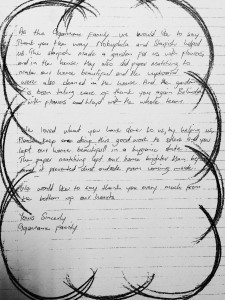 As the Sopazana family we would like to say
thank you for way Makaphala and Siyaphi helped
us. The Siyaphi made a garden for us with flowers
and in the house they also did paper matching to
make our home beautiful and the cupboard
were also cleaned in the house. And the garden
is been taking care of thank you again
with flowers and blessed with the whole team.
We loved what you have done to us, by helping us
Please keep on doing this good work to others and you
kept our home beautiful in a hygienic state.
Then paper matching left our home brighter than before
and it prevented dust outside from coming inside.
We would like to say thank you every much from
the bottom of our hearts.
Yours Sincerely
Family